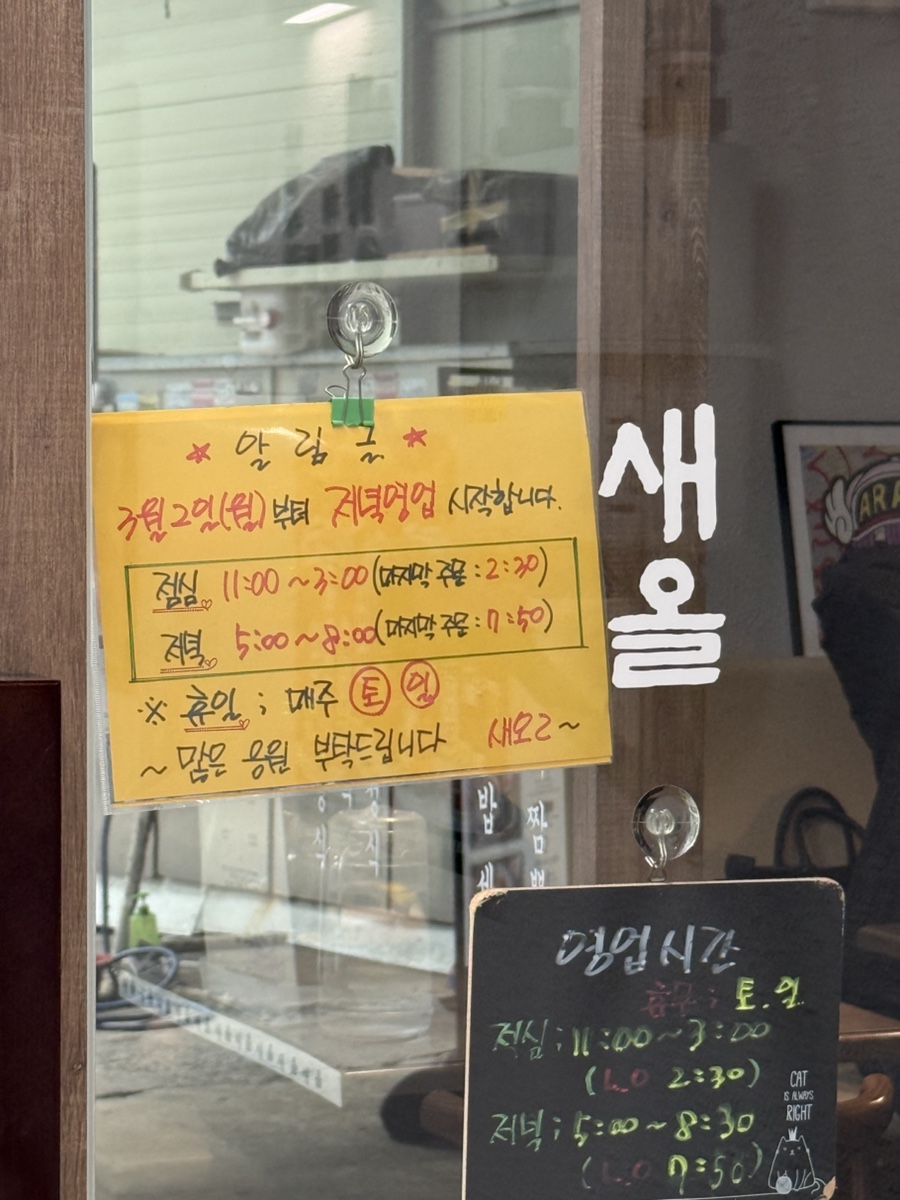 ★ 알림글 ★
3월2일(월)부터 저녁영업 시작합니다.
점심 11:00 ~ 3:00 (마지막 주문 : 2:30)
저녁 5:00 ~ 8:00 (마지막 주문 : 7:50)
※ 휴일 ; 매주 토 일
~ 많은 응원 부탁드립니다 새오ㄹ ~
새올
영업시간
휴무 ; 토.일
점심 ; 11:00 ~ 3:00
(L.O 2:30)
저녁 ; 5:00 ~ 8:30
(L.O 7:50)
CAT
IS ALWAYS
RIGHT